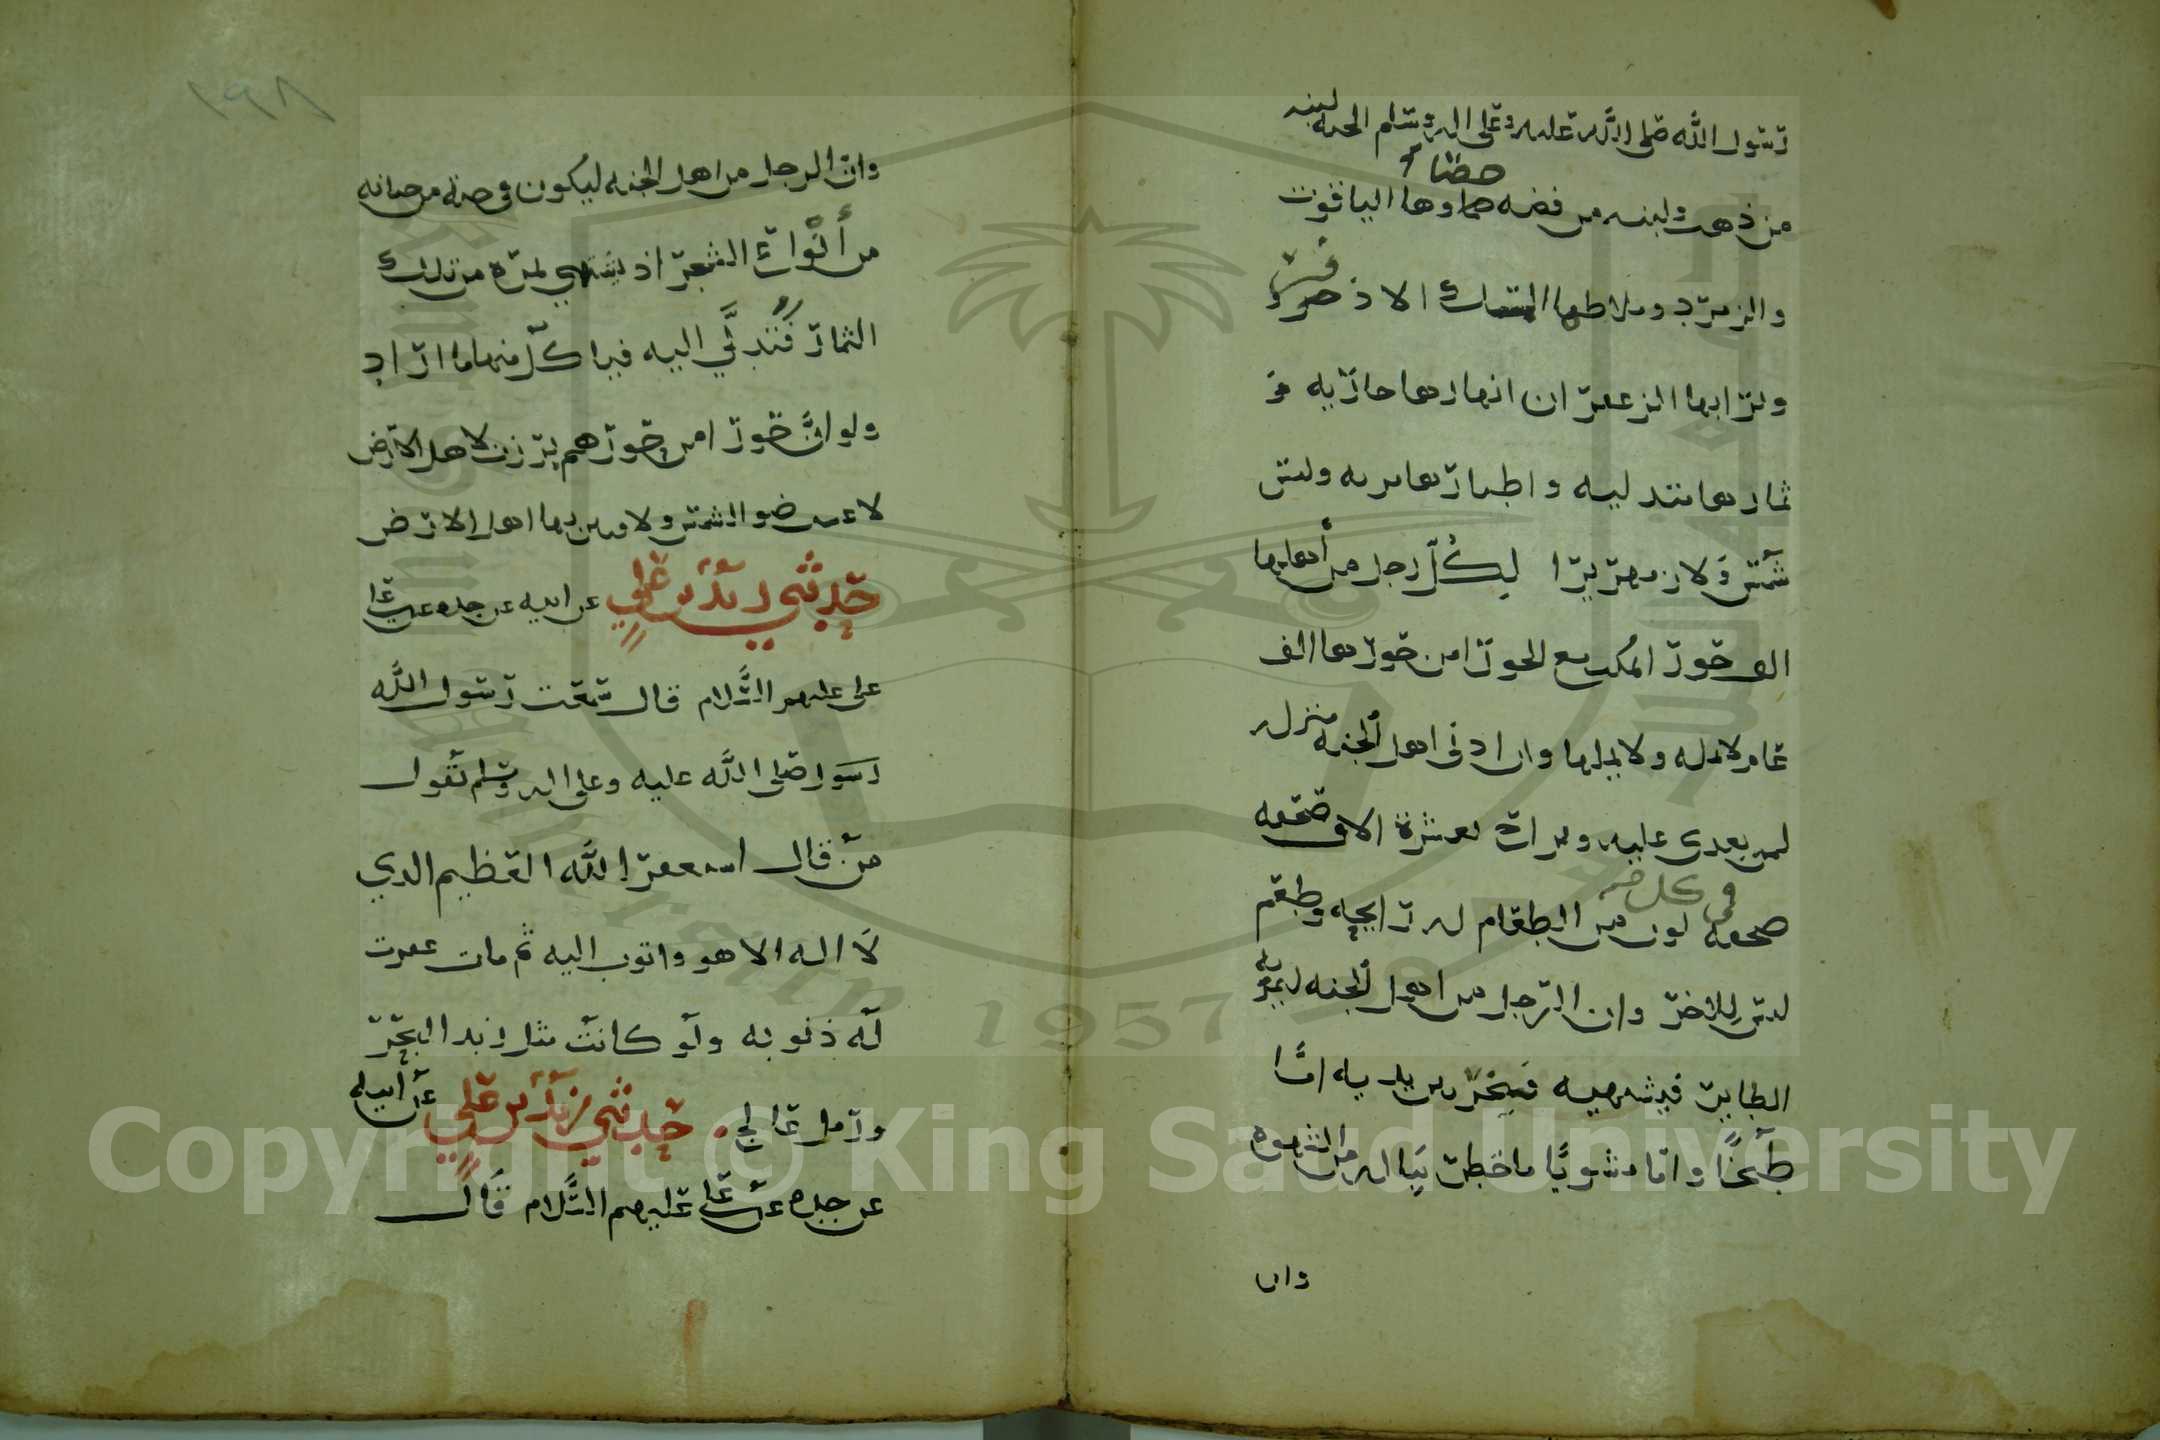 رسول الله صلى الله عليه وعلى اله وسلم الجنه لبنه
حصاا
من ذهب ولبنه من فضه حصاوها الياقوت
والزمرد وملاطها المسك الاذفر
وترابها الزعفران انهارها جاريه و
ثمارها متدليه واطيارها مريه وليس
شمس ولا زمهريرا لكل رجل من أهلها
الف حورا يمكث مع الحورا من حورها الف
عام لا تمله ولا يملها وان ادنى اهل الجنه منزله
لمن يغدى عليه ويراح بعشرة الاف صحفه
في كل
صحفه لون من الطعام له رايحه وطعم
ليس للاخر وان الرجل من اهل الجنه ليمر به
الطاير فيشتهيه فيخر بين يديه اما
طبخا واما مشويا ما خطر بباله من الشهوه
وان
١٩٨
وان الرجل من اهل الجنه ليكون في جنة من جنانه
من أنواع الشجر اذ يشتهي ثمرة من تلك
الثمار فتدلى اليه فياكل منها ما اراد
ولو ان حورا من حورهم برزن لاهل الارض
لاعشت ضو الشمس ولافتتن بها اهل الارض
حدثني زيد بن علي عن ابيه عن جده عن
علي عليهم السلام قال سمعت رسول الله
رسول صلى الله عليه وعلى اله وسلم يقول
من قال استغفر الله العظيم الذي
لا اله الا هو واتوب اليه ثم مات غفرت
له ذنوبه ولو كانت مثل زبد البحر
ورمل عالج حدثني زيد بن علي عن ابيه
عن جده عن علي عليهم السلام قال
Copyright © King Saud University
1957